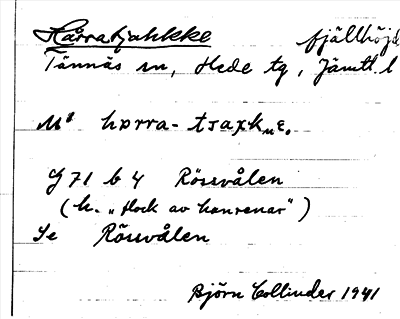 Hårratjahkke fjällhöjd
Tännäs sn, Hede tg, Jämtl. l
Ms hɒrra-tsaxkuɛ.
G 71 b 4 Rössvålen
(h. „flock av hanrenar")
Se Rössvålen
Björn Collinder 1941